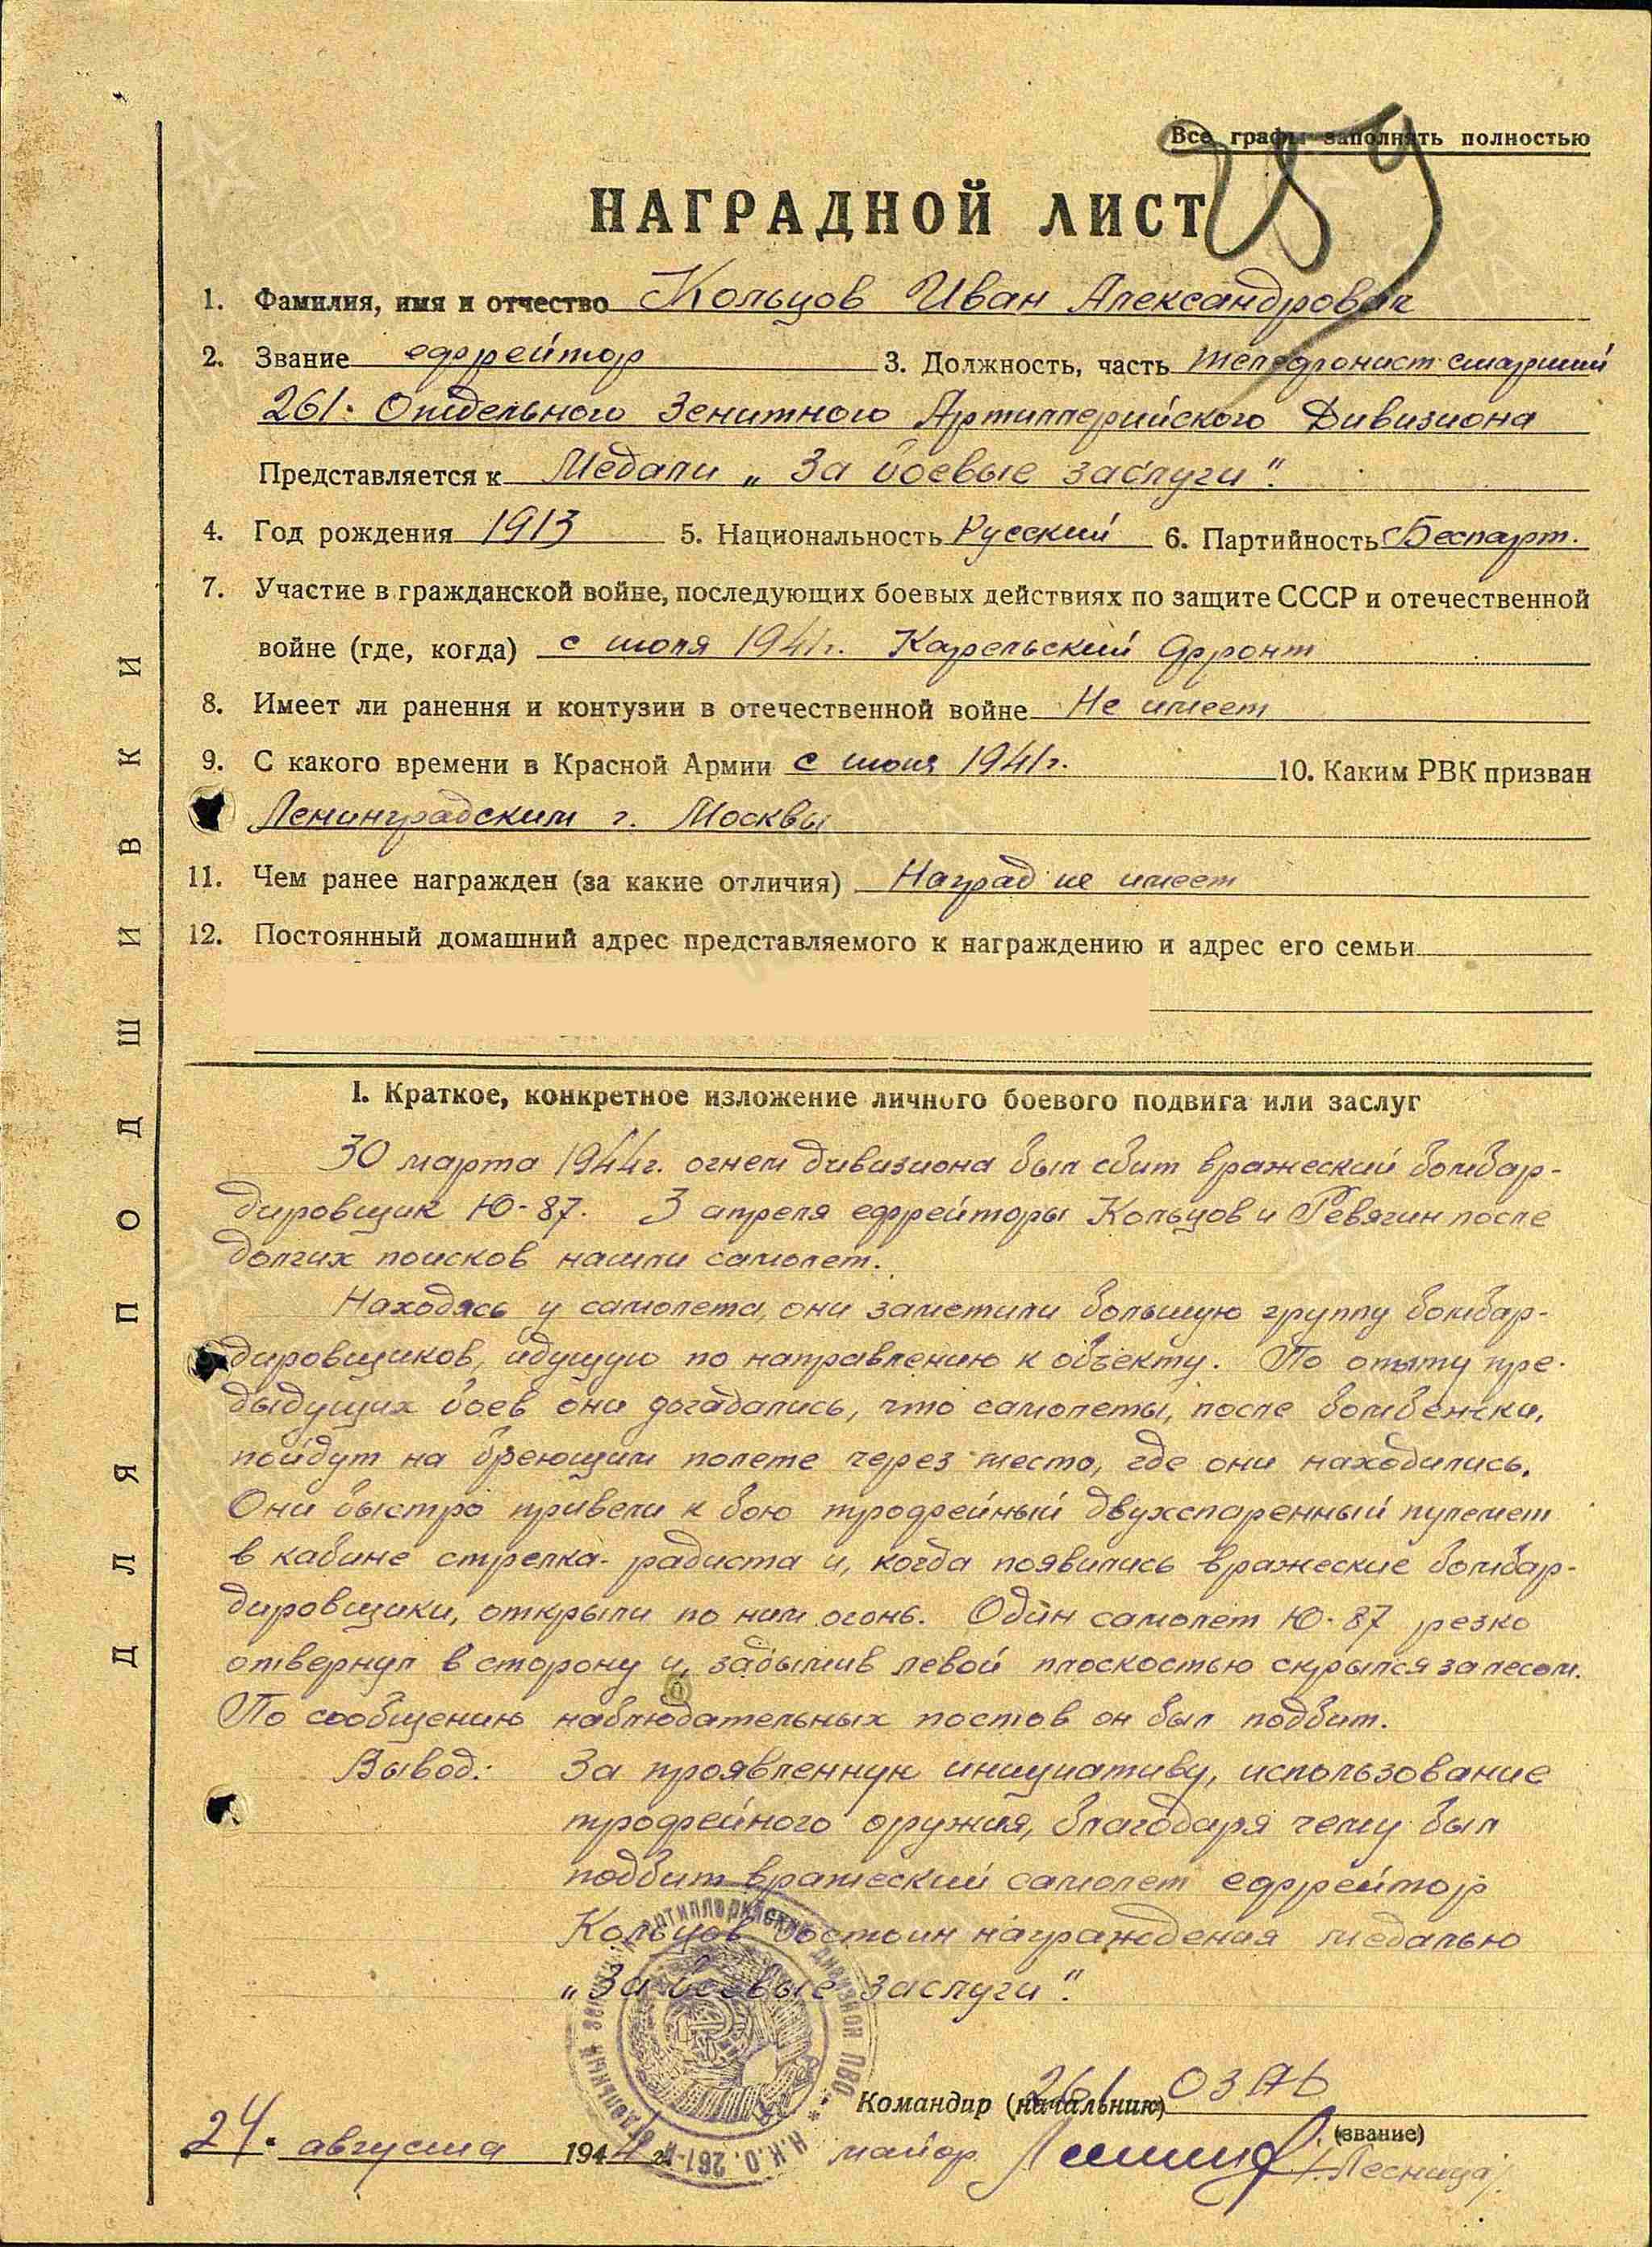 Все графы заполнять полностью
259
НАГРАДНОЙ ЛИСТ
1. Фамилия, имя и отчество Кольцов Иван Александрович
2. Звание ефрейтор 3. Должность, часть телефонист старший
261 Отдельного Зенитного Артиллерийского Дивизиона
Представляется к Медали „За боевые заслуги“.
4. Год рождения 1913 5. Национальность Русский 6. Партийность Беспарт.
7. Участие в гражданской войне, последующих боевых действиях по защите СССР и отечественной
войне (где, когда) с июля 1941г. Карельский фронт
8. Имеет ли ранения и контузии в отечественной войне Не имеет
9. С какого времени в Красной Армии с июня 1941г. 10. Каким РВК призван
Ленинградским г. Москвы
11. Чем ранее награжден (за какие отличия) Наград не имеет
12. Постоянный домашний адрес представляемого к награждению и адрес его семьи
I. Краткое, конкретное изложение личного боевого подвига или заслуг
30 марта 1944г. огнем дивизиона был сбит вражеский бомбар-
дировщик Ю-87. 3 апреля ефрейторы Кольцов и Ревягин после
долгих поисков нашли самолет.
Находясь у самолета, они заметили большую группу бомбар-
дировщиков, идущую по направлению к объекту. По опыту пре-
дыдущих боев они догадались, что самолеты, после бомбежки,
пойдут на бреющем полете через место, где они находились.
Они быстро привели к бою трофейный двухспаренный пулемет
в кабине стрелка-радиста и, когда появились вражеские бомбар-
дировщики, открыли по ним огонь. Один самолет Ю-87 резко
отвернул в сторону и, задымив левой плоскостью скрылся за лесом.
По сообщению наблюдательных постов он был подбит.
Вывод: За проявленную инициативу, использование
трофейного оружия, благодаря чему был
подбит вражеский самолет ефрейтор
Кольцов достоин награждения медалью
„За боевые заслуги“.
Командир (начальник) 261 ОЗАД
(звание)
24. августа 1944 г. майор /Лесница/
ДЛЯ ПОДШИВКИ
Н.К.О. 261-й отдельный зенитный артиллерийский дивизион ПВО